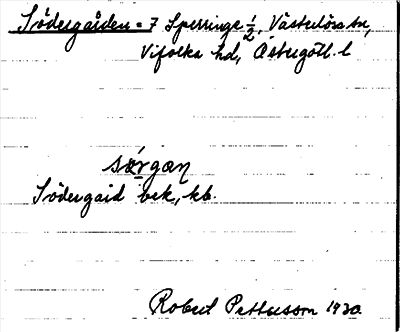 Södergården = 7 Sperringe 1/2, Västerlösa sn,
Vifolka hd, Östergötl. l
särgan
Södergård bek, kb.
Robert Pettersson 1930.